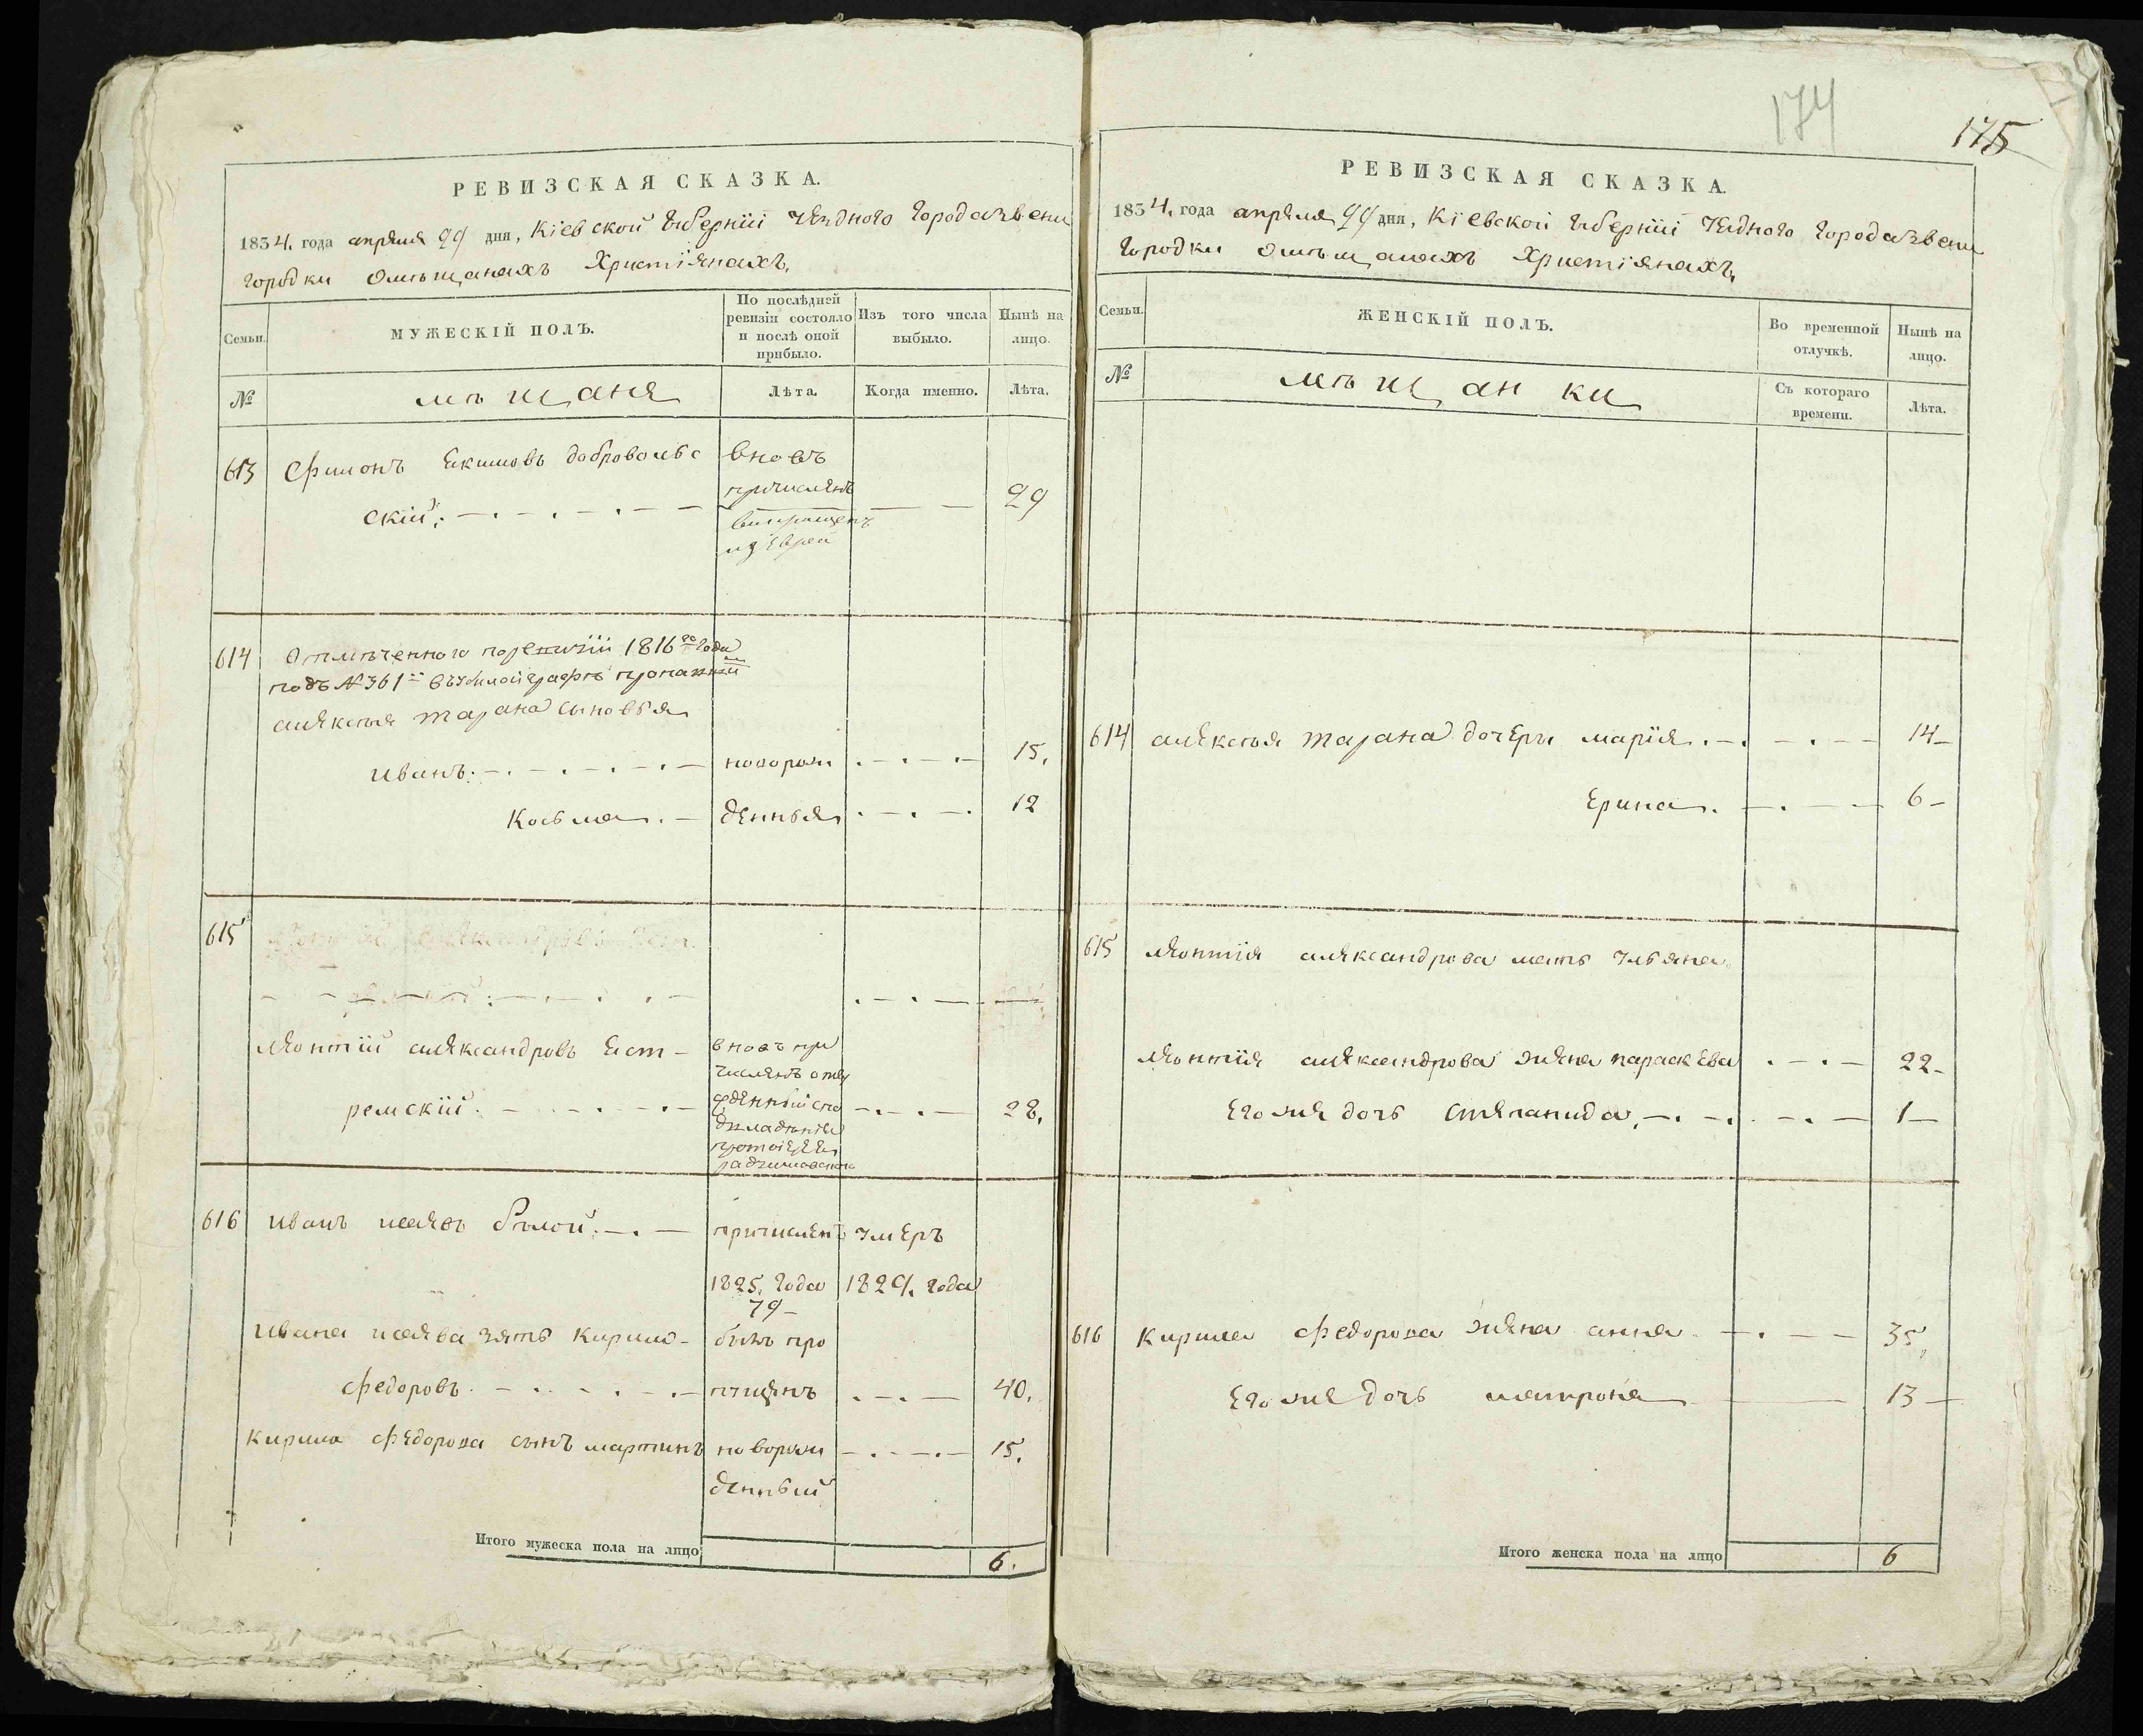 174
175
РЕВИЗСКАЯ СКАЗКА.
1834. года апреля 29 дня, Кіевской Губерніи Уезднаго Города Звени
Городки Омѣщанахъ Християнахъ,
Семьи.
МУЖЕСКІЙ ПОЛЪ.
По послѣдней ревизіи состояло и послѣ оной прибыло.
Изъ того числа выбыло.
Нынѣ на лицо.
№
мѣщаня
Лѣта.
Когда именно.
Лѣта.
613 Филонъ Екимовъ доброволь вновъ
причислянъ
скій: 29
из Еврей
614 Отмѣченного поревизіи 1816го Года
подъ №361 графѣ
алексея тарана сыновья
иванъ: новорож 15.
Козьма. денныя 12
615
Леонтій александровъ Ест- вновъ при
численъ
ремскій. 28.
616 иванъ исаявъ бѣлой: причислянъ умеръ
1825. года 1829. года
79
ивана исаява зять Кирило- былъ про
федоровъ. пущянъ 40.
Кирила федорова сынъ мартинъ новорож 15.
денный
Итого мужеска пола на лицо 6.
РЕВИЗСКАЯ СКАЗКА.
1834. года апреля 29 дня, Кіевской Губерніи Уезднаго Города Звени
Городки Омѣщанахъ Християнахъ,
Семьи.
ЖЕНСКІЙ ПОЛЪ.
Во временной отлучкѣ.
Нынѣ на лицо.
№
мѣщанки
Съ котораго времени.
Лѣта.
614 алексея тарана дочеры марія. 14
Ерина. 6
615 леонтія александрова мать Ульяна
леонтія александрова жяна параскева 22
Его жя дочь стяпанида, 1
616 Кирила федорова жяна анна 35,
Его жя дочь матрона 13
Итого женска пола на лицо 6